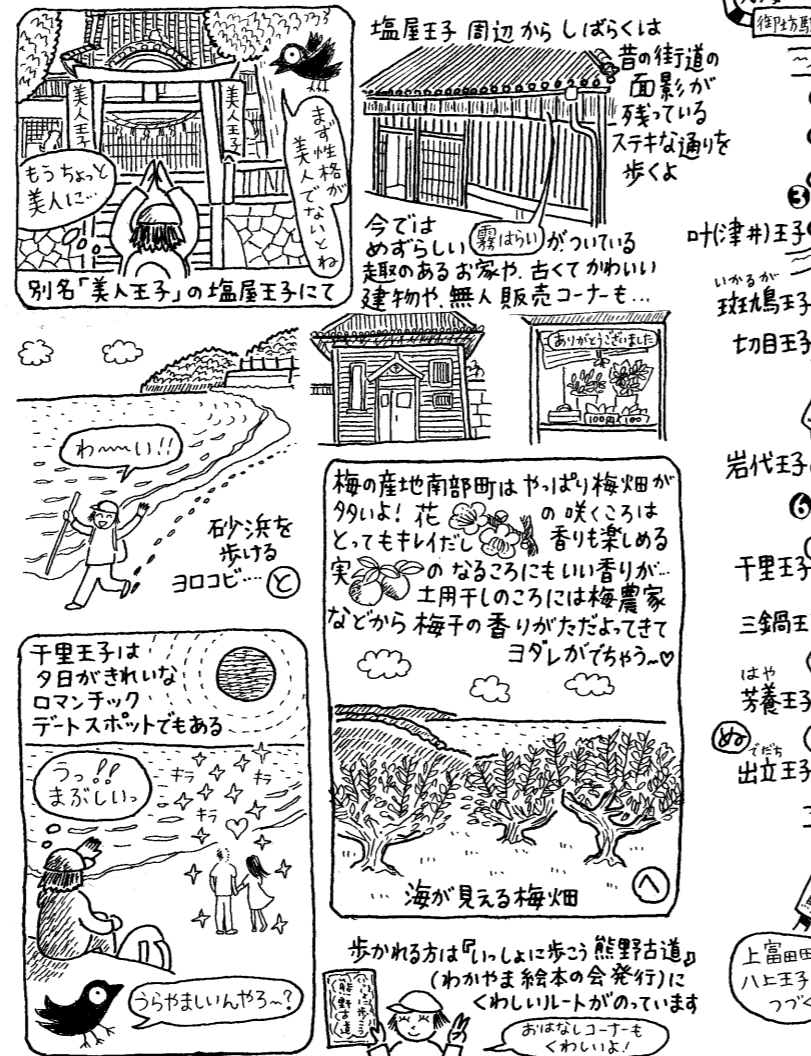 美人王子
美人王子
もうちょっと
美人に…
まず性格が
美人でないとね
別名「美人王子」の塩屋王子にて
塩屋王子 周辺から しばらくは
昔の街道の
面影が
残っている
ステキな通りを
歩くよ
今では
めずらしい 霧はらい がついている
趣のあるお家や、古くてかわいい
建物や、無人販売コーナーも…
ありがとうございました
100円
100
わ〜〜い!!
砂浜を
歩ける
ヨロコビ…と
梅の産地南部町はやっぱり梅畑が
多いよ! 花 の咲くころは
とってもキレイだし 香りも楽しめる
実 の なるころにもいい香りが…
土用干しのころには梅農家
などから梅干の香りがただよってきて
ヨダレがでちゃう〜♡
海が見える梅畑
へ
千里王子は
夕日がきれいな
ロマンチック
デートスポットでもある
うっ!!
まぶしいっ
キラ
キラ
キラ
うらやましいんやろ〜?
歩かれる方は『いっしょに歩こう 熊野古道』
(わかやま絵本の会発行)に
くわしいルートがのっています
いっしょに歩こう
熊野古道
おはなしコーナーも
くわしいよ!
御坊駅
3
叶(津井)王子
いかるが
斑鳩王子
切目王子
岩代王子
6
千里王子
三鍋王
はや
芳養王子
ぬ
でだち
出立王子
上富田
八上王子
つづ